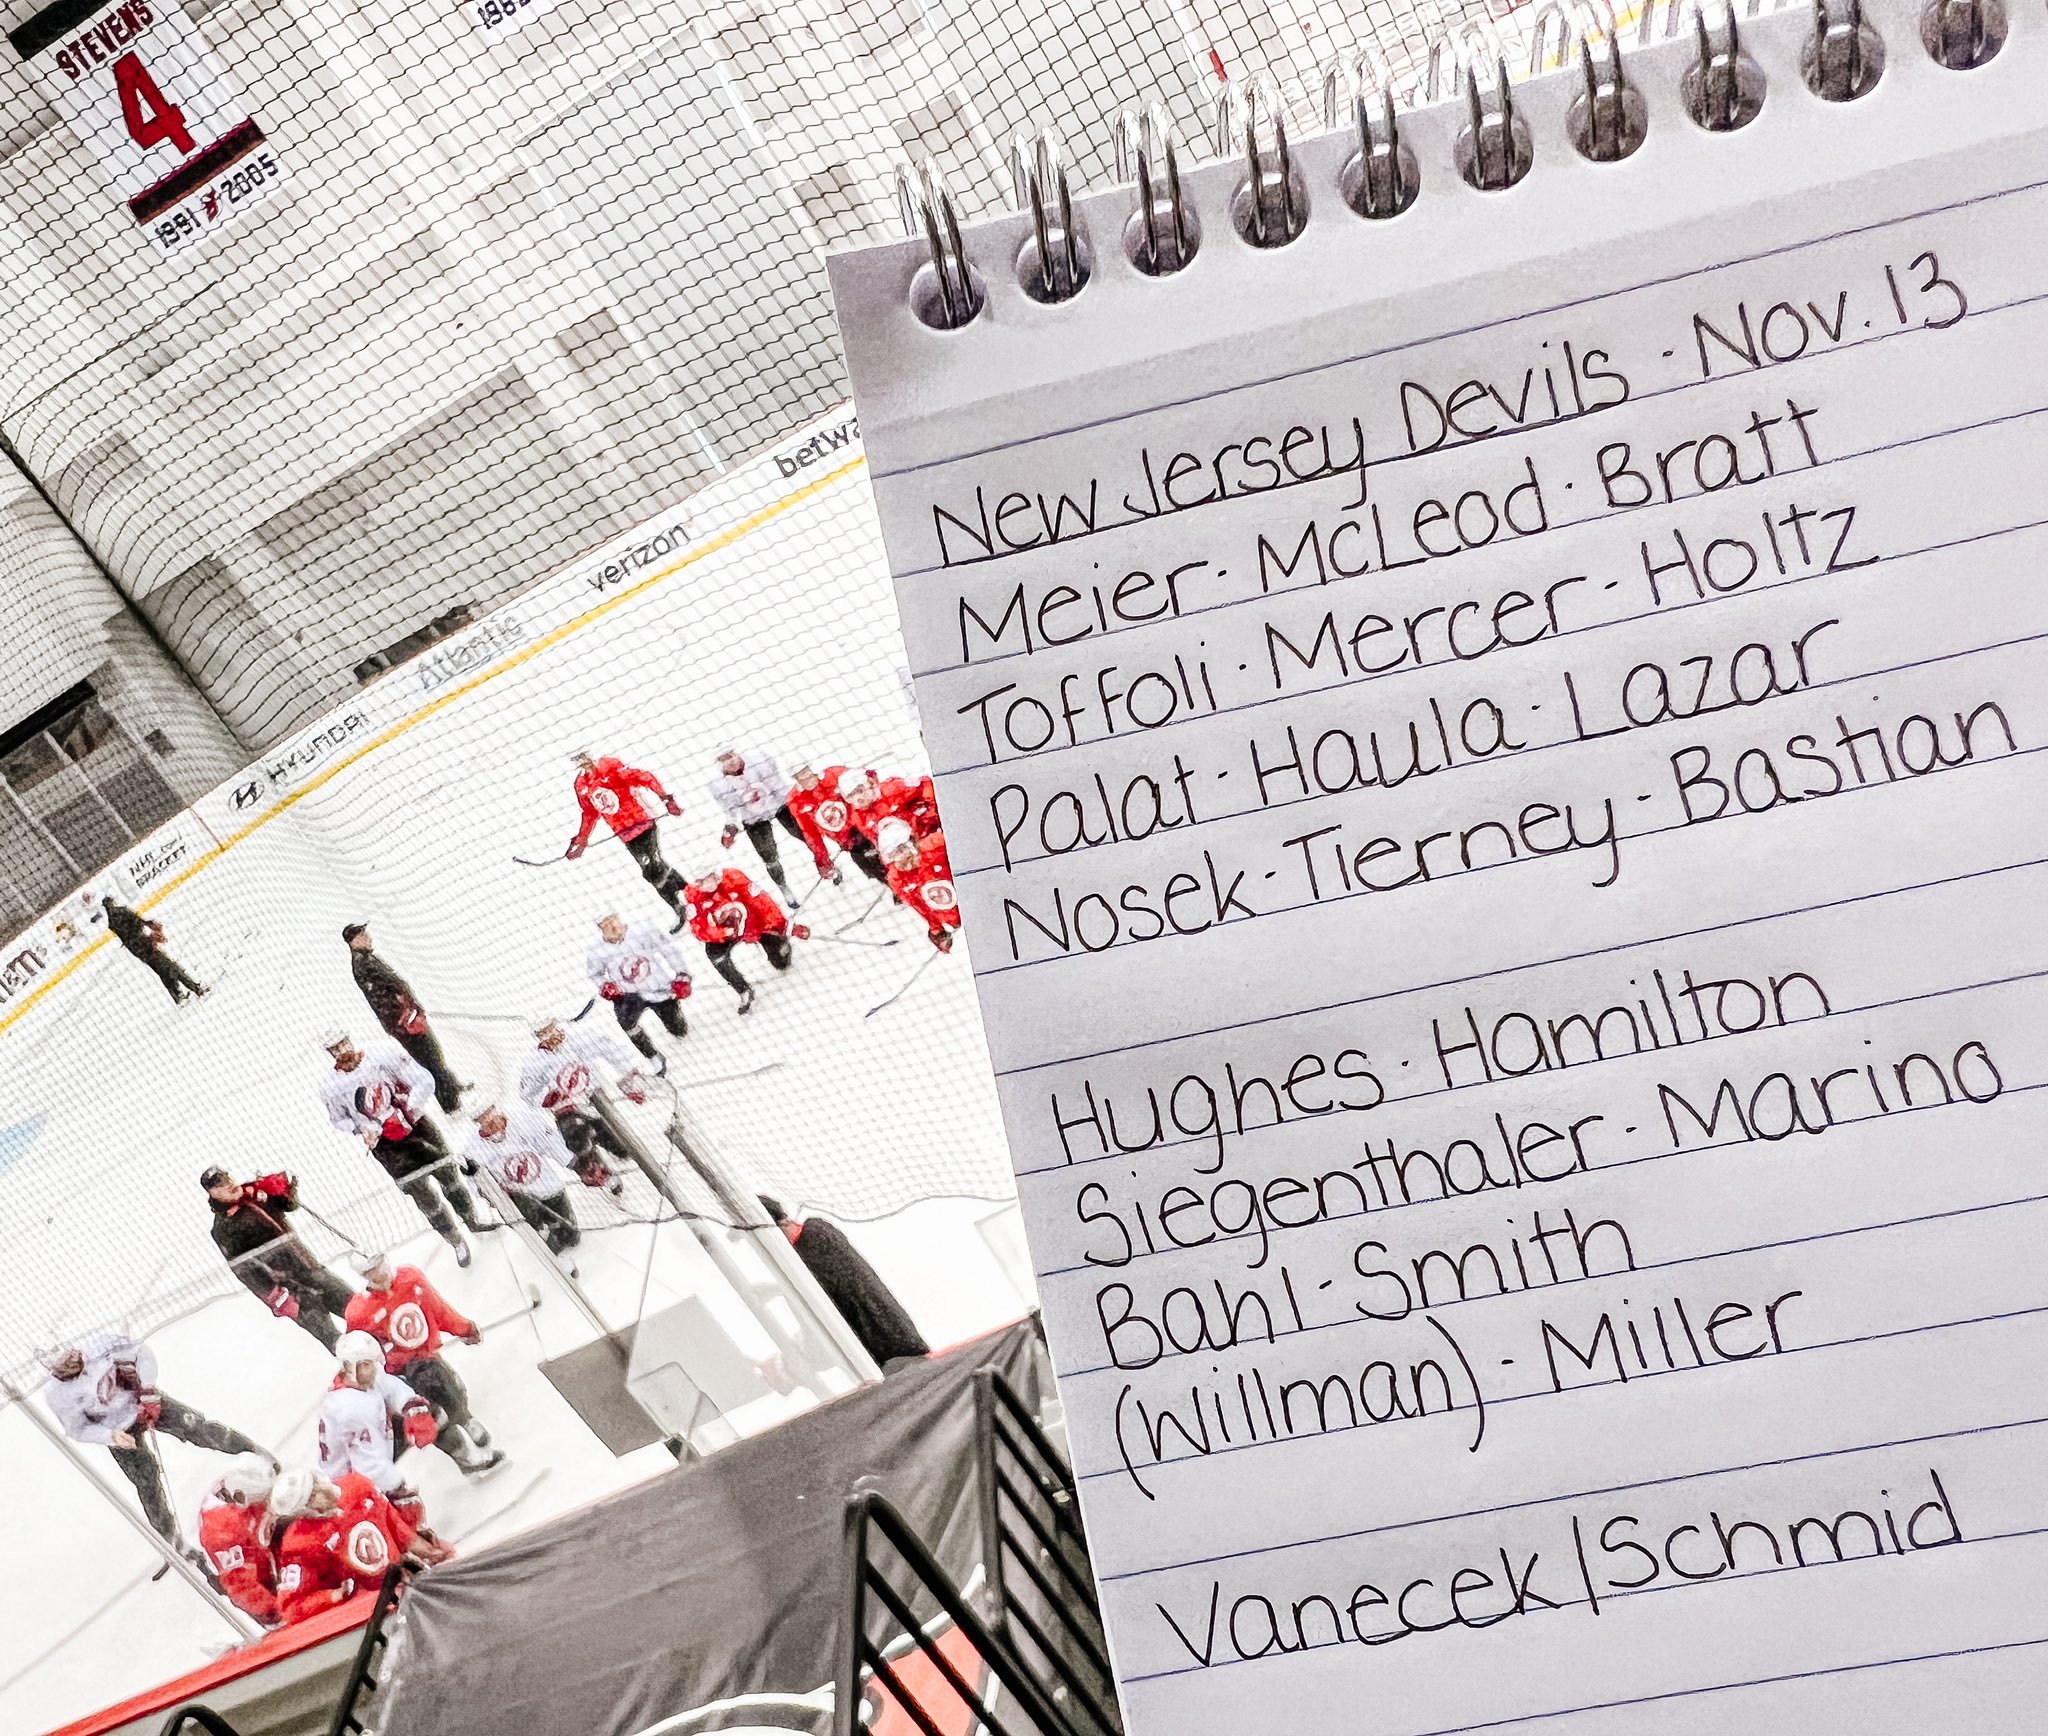 STEVENS
4
1991 2005
betwa
verizon
Atlantic
HYUNDAI
New Jersey Devils · Nov. 13
Meier · McLeod · Bratt
Toffoli · Mercer · Holtz
Palat · Haula · Lazar
Nosek · Tierney · Bastian
Hughes · Hamilton
Siegenthaler · Marino
Bahl · Smith
(Willman) · Miller
Vanecek/Schmid